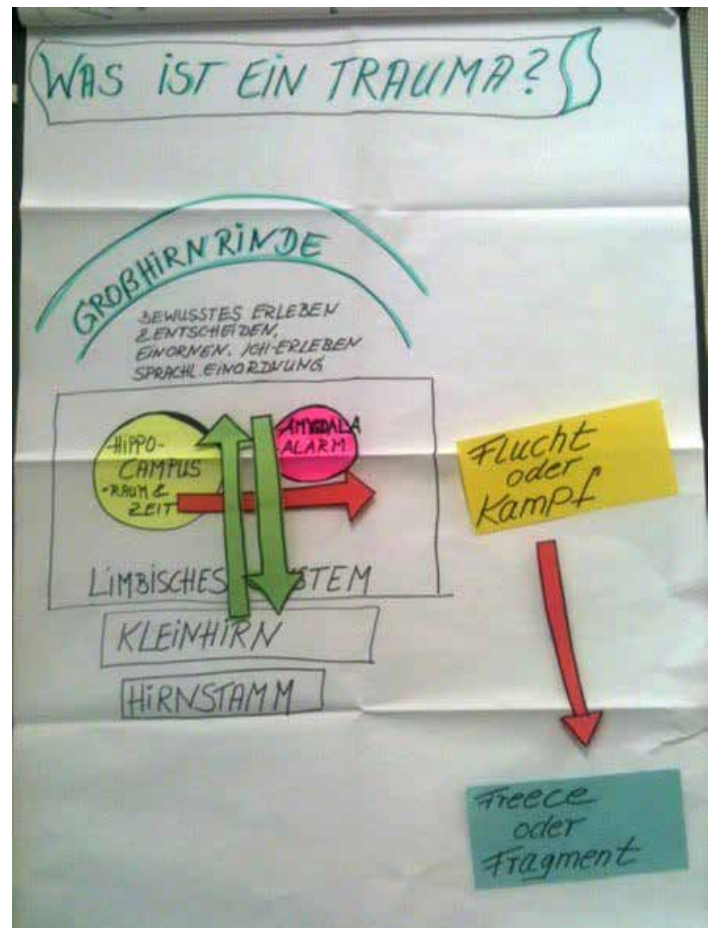 WAS IST EIN TRAUMA?
GROßHIRNRINDE
BEWUSSTES ERLEBEN
& ENTSCHEIDEN,
EINORNEN, ICH-ERLEBEN
SPRACHL. EINORDNUNG
-HIPPO-
CAMPUS
-RAUM &
ZEIT
AMYGDALA
ALARM
LIMBISCHES STEM
KLEINHIRN
HIRNSTAMM
Flucht
oder
Kampf
Freece
oder
Fragment